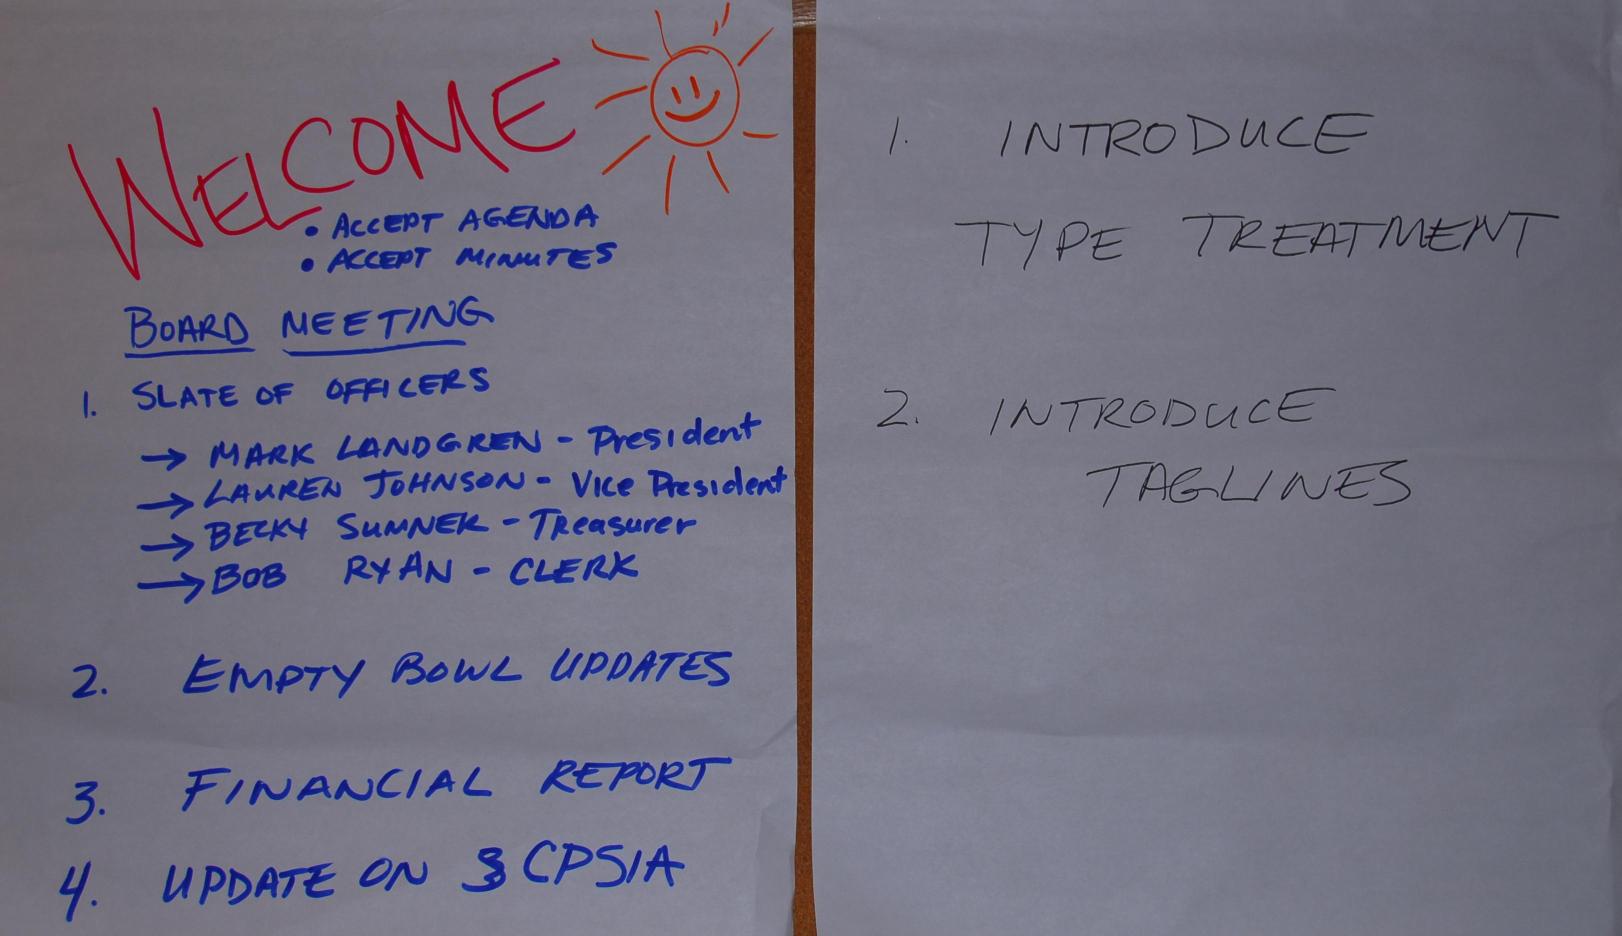 WELCOME
• ACCEPT AGENDA
• ACCEPT MINUTES
BOARD MEETING
1. SLATE OF OFFICERS
→ MARK LANDGREN - President
→ LAUREN JOHNSON - Vice President
→ BECKY SUMNER - Treasurer
→ BOB RYAN - CLERK
2. EMPTY BOWL UPDATES
3. FINANCIAL REPORT
4. UPDATE ON CPSIA
1. INTRODUCE
TYPE TREATMENT
2. INTRODUCE
TAGLINES